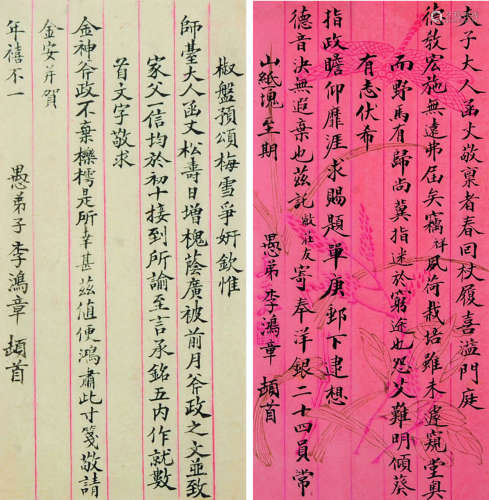 夫子大人函丈敬稟者春回杖履喜溢門庭
德教宏施無遠弗屆矣竊祥夙荷栽培雖未邃窺堂奧
而野馬有歸尚冀指迷於窮途也怨艾難明傾葵
有志伏希
指政瞻仰靡涯求賜題單庚郵下逮想
德音決無遐棄也茲託敝莊友寄奉洋銀二十四員常
山紙塊至期
愚弟 李鴻章 頓首
椒盤預頌梅雪爭妍欽惟
師臺大人函丈松壽日增槐蔭廣被前月斧政之文並致
家父一信均於初十接到所諭至言承銘五內作就數
首文字敬求
金神斧政不棄櫟樗是所幸甚茲值便鴻肅此寸箋敬請
金安并賀
年禧不一
愚弟子 李鴻章 頓首